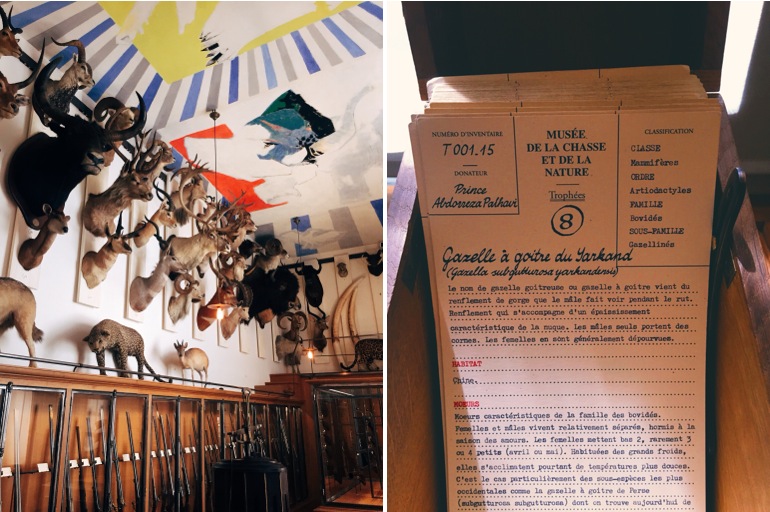 NUMÉRO D'INVENTAIRE
T 001.15
DONATEUR
Prince
Abdorreza Pahlavi
MUSÉE
DE LA CHASSE
ET DE LA
NATURE
Trophées
8
CLASSIFICATION
CLASSE
Mammifères
ORDRE
Artiodactyles
FAMILLE
Bovidés
SOUS-FAMILLE
Gazellinés
Gazelle à goitre du Yarkand
(Gazella subgutturosa yarkandensis)
Le nom de gazelle goitreuse ou gazelle à goitre vient du
renflement de gorge que le mâle fait voir pendant le rut.
Renflement qui s'accompagne d'un épaississement
caractéristique de la nuque. Les mâles seuls portent des
cornes. Les femelles en sont généralement dépourvues.
HABITAT
Chine.
MOEURS
Moeurs caractéristiques de la famille des bovidés.
Femelles et mâles vivent relativement séparés, hormis à la
saison des amours. Les femelles mettent bas 2, rarement 3
ou 4 petits (avril ou mai). Habituées des grands froids,
elles s'acclimatent pourtant de températures plus douces.
C'est le cas particulièrement des sous-espèces les plus
occidentales comme la gazelle à goitre de Perse
(subgutturosa subgutturosa) dont on trouve aujourd'hui de